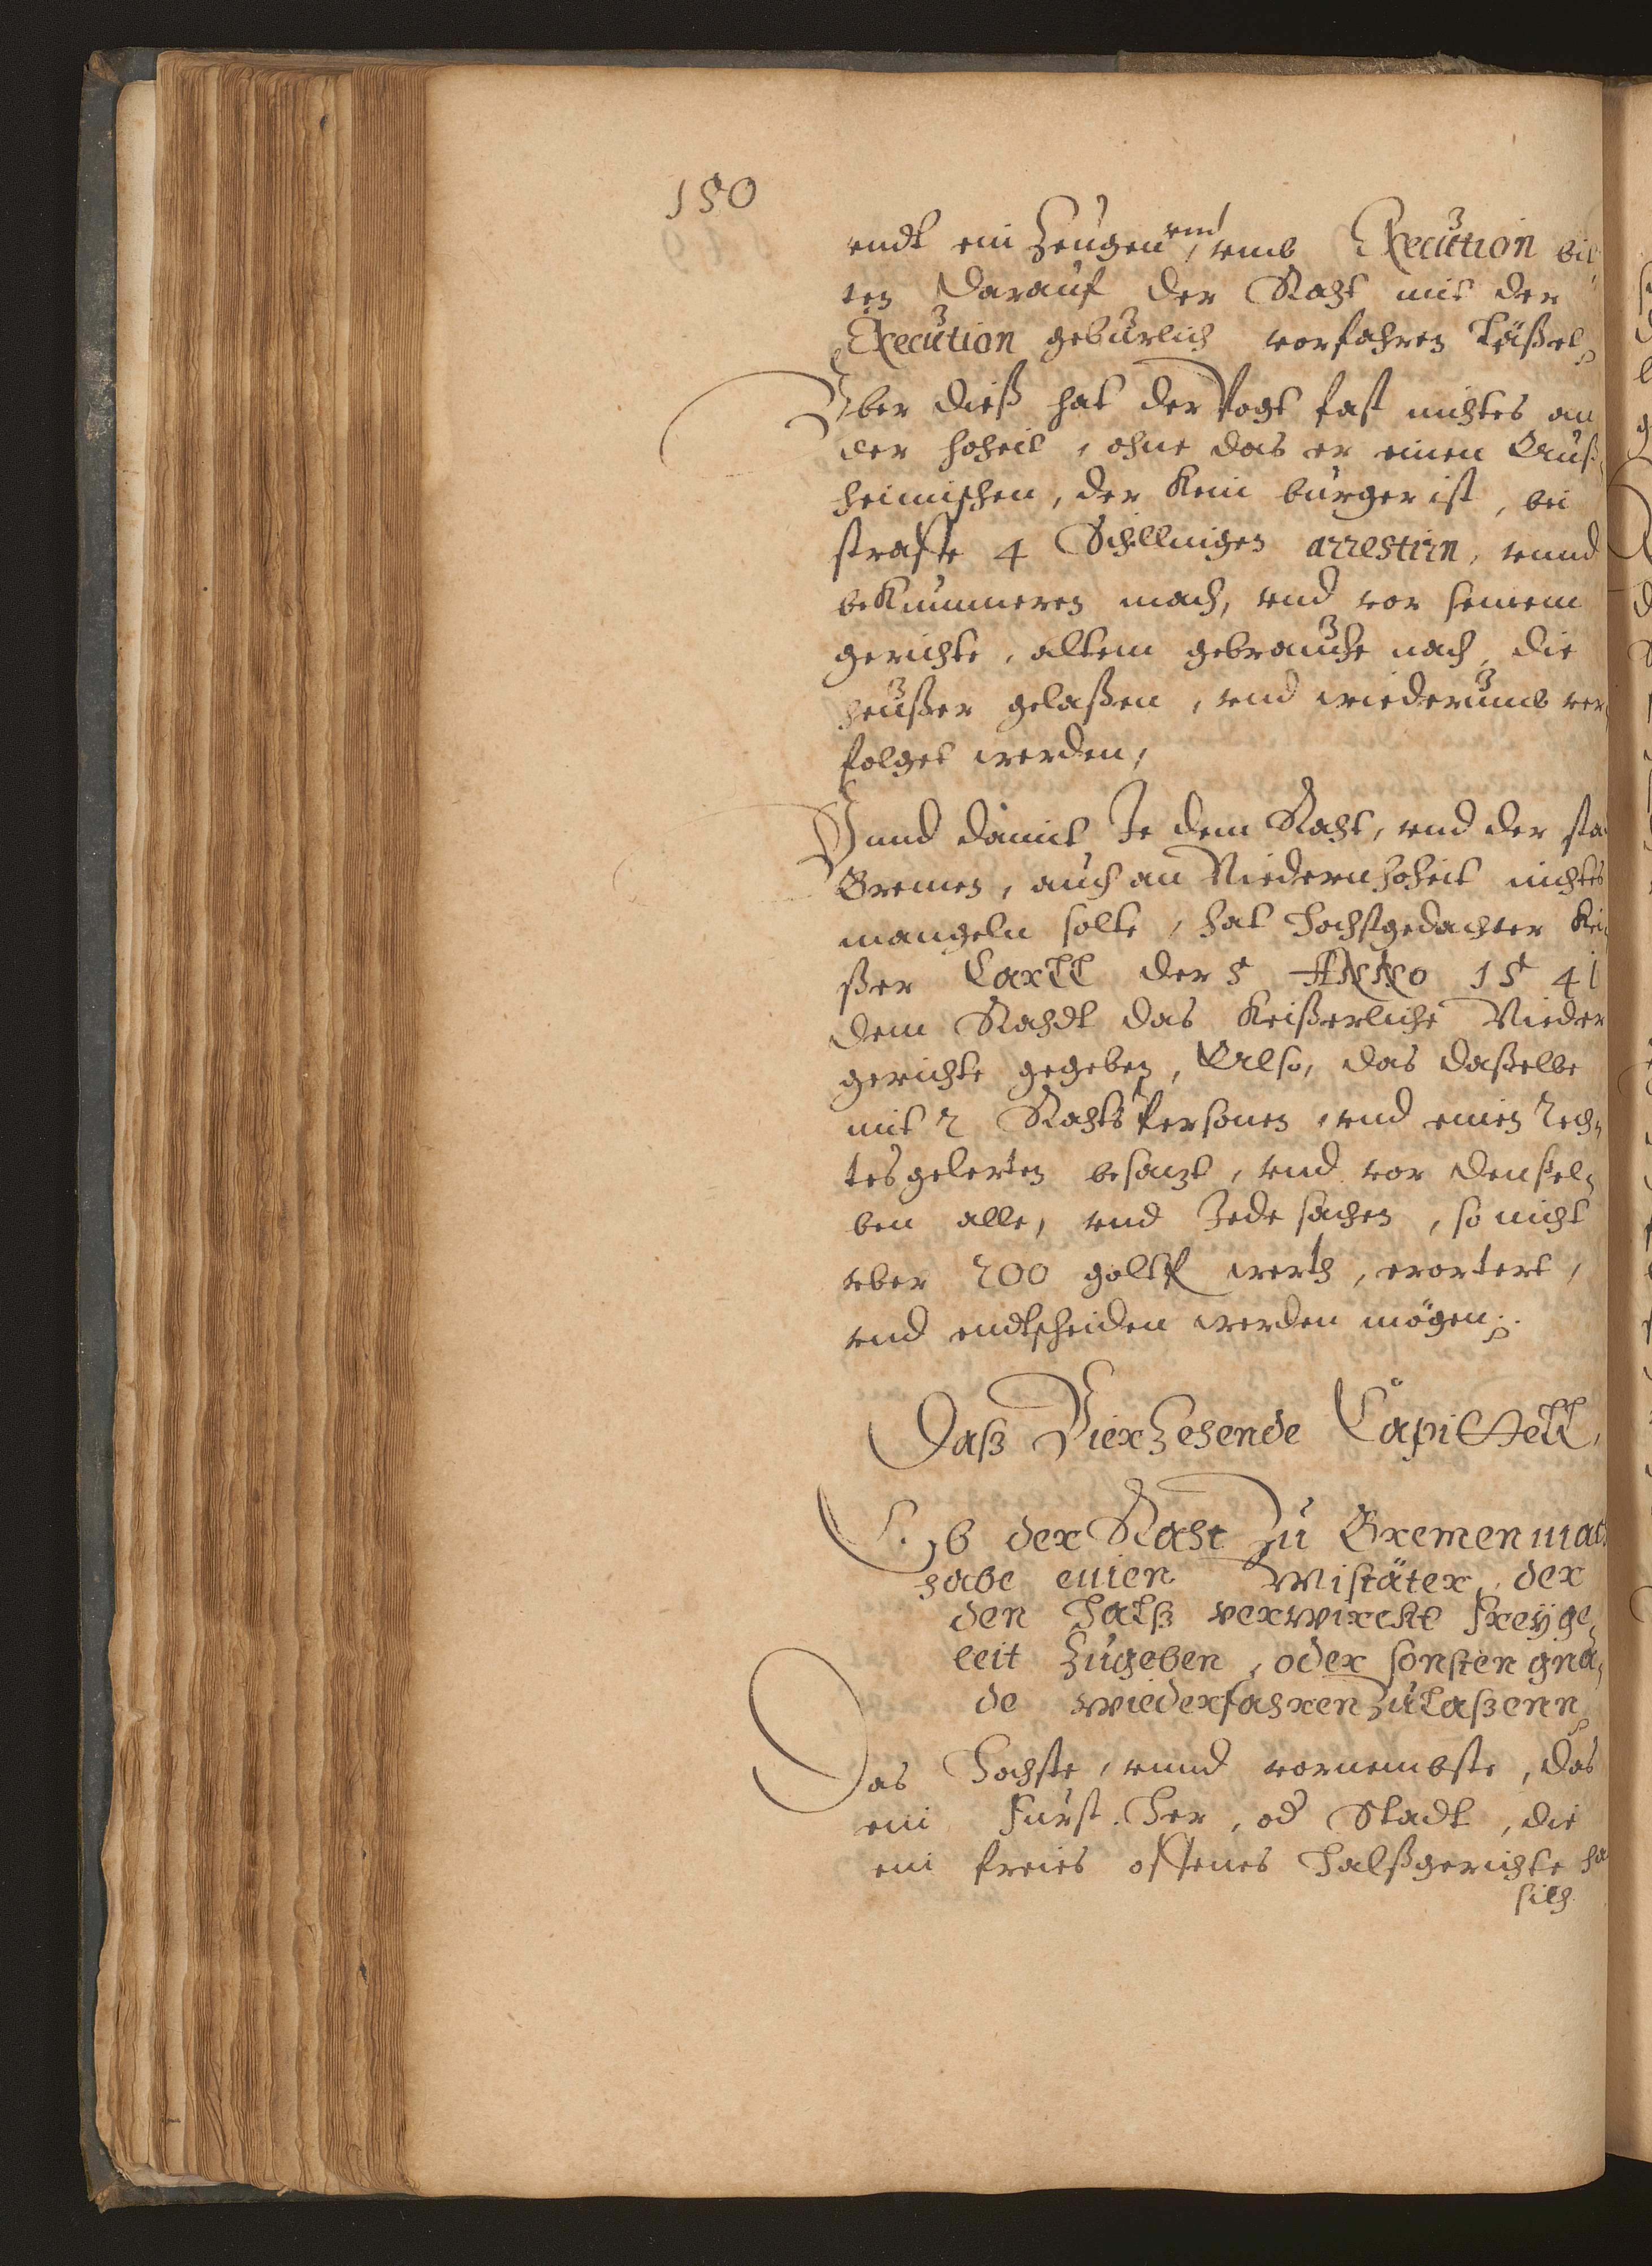 150
endt ein Zeugen, vnd vmb Execution bit
ten darauf der Raht mit der
Execution gebürlich vorfahren läßet
Vber dieß hat der Vogt fast nichtes an
der hoheit, ohne das er einen Auß,
heimischen, der kein bürger ist, bei
straffe 4 Schillingen arrestirn, vnnd
bekummeren mach, vnd vor seinem
gerichte, altem gebrauche nach, die
heußer gelaßen, vnd wiederumb ver
folget werden,
Vnnd damit Je dem Raht, vnd der sta
Bremen, auch an Niedern hoheit nichtes
mangeln solte, hat Hochstgedachter Kei
ßer Carll der 5 Anno 1541
dem Rahdt das Keißerliche Nieder
gerichte gegeben, Also, das daßelbe
mit 2 Rahts Personen, vnd einen Rech,
tes gelerten besatzt, vnd vor denßel,
ben alle, vnd Jede sachen, so nicht
vber 200 goltfl werth, erortert,
vnd endtscheiden werden mögen
Daß Vierzehende Capittell,
Ob der Raht zu Bremen mach
habe einen Mistäter, der
den Halß verwirckt freyge,
leit zugeben, oder sonsten gna,
de wiederfahren zulaßenn
Das Hochste, vnnd vornembste, das
ein Fürst. Her, od Stadt, die
ein freies offenes Halßgerichte ha
sich